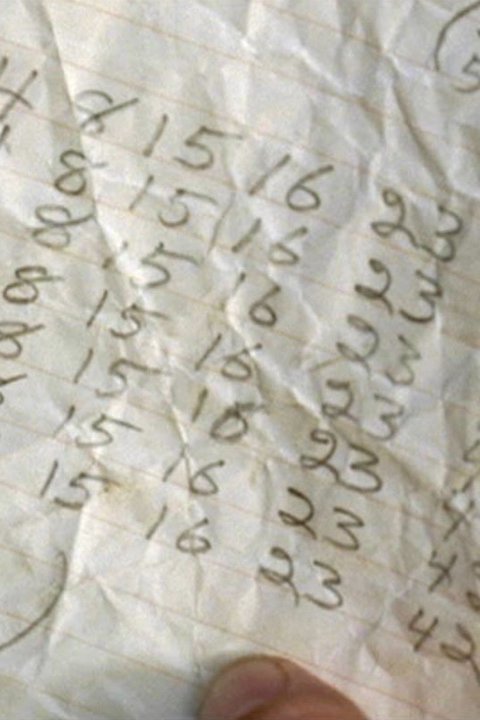 4 8 15 16 23
4 8 15 16 23
8 15 16 23
8 15 16 23
8 15 16 23
15 16 23 4
15 16 23 42